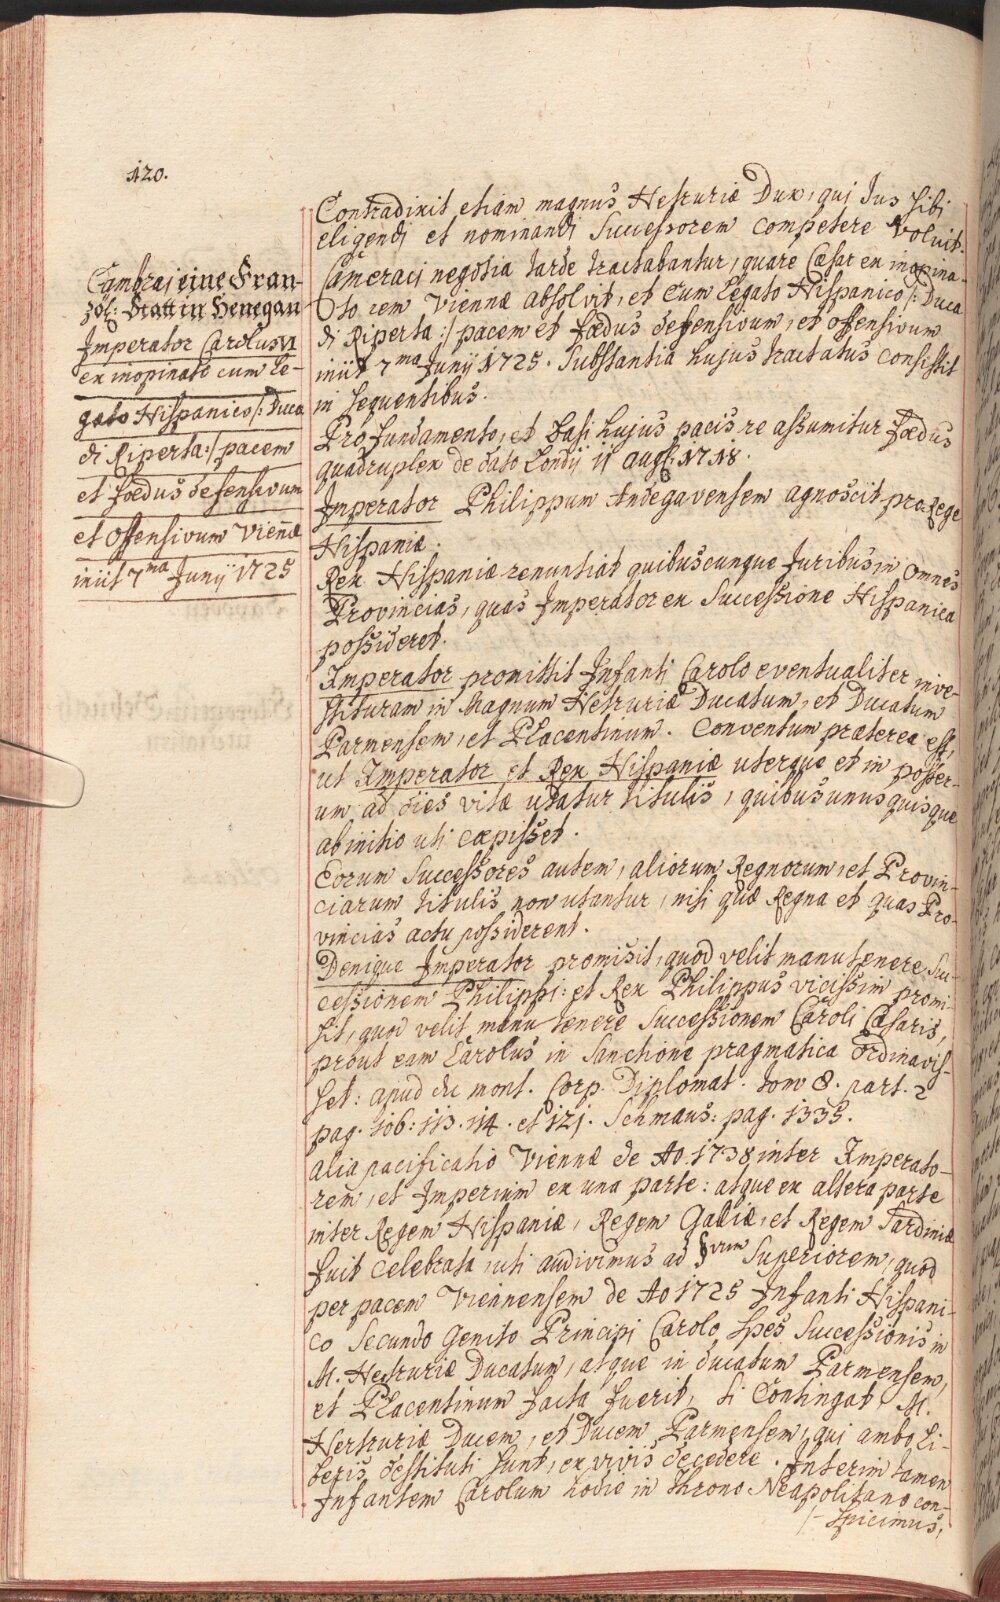 120.
Cambraj eine Fran-
zöß: Statt in Henegau
Imperator Carolus VI
ex inopinato cum Le-
gato Hispanico /: Duca
di Riperta :/ pacem
et foedus defensivum
et offensivum Viennæ
iniit 7ma Junÿ 1725
Contradixit etiam magnus Hetruriæ Dux, qui Jus sibi
eligendi et nominandi Successorem competere voluit.
Cameraci negotia tarde tractabantur, quare Cæsar ex inopina-
to rem Viennæ absolvit, et cum Legato Hispanico /: Duca
di Riperta :/ pacem et foedus defensivum, et offensivum
iniit 7ma Junÿ 1725. Substantia hujus tractatus consistit
in sequentibus.
Pro fundamento, et basi hujus pacis re assumitur foedus
quadruplex de dato Londÿ 11 aug: 1718.
Imperator Philippum Andegavensem agnoscit pro Rege
Hispaniæ.
Rex Hispaniæ renuntiat quibuscunque Juribus in omnes
Provincias, quas Imperator ex Successione Hispanica
possideret.
Imperator promittit Infanti Carolo eventualiter inve-
stituram in Magnum Hetruriæ Ducatum, et Ducatum
Parmensem, et Placentinum. Conventum præterea est,
ut Imperator et Rex Hispaniæ uterque et in poster-
um ad dies vitæ utatur titulis, quibus unusquisque
ab initio uti cœpisset.
Eorum Successores autem, aliorum Regnorum, et Provin-
ciarum titulis non utantur, nisi quæ Regna et quas Pro-
vincias actu possiderent.
Denique Imperator promisit, quod velit manutenere Suc-
cessionem Philippi: et Rex Philippus vicissim promi-
sit, quod velit manu tenere Successionem Caroli Cæsaris,
prout eam Carolus in Sanctione pragmatica ordinavis-
set: apud du mont. Corp. Diplomat. tom 8. part. 2
pag. 106: 113. 114. et 121. Schmaus: pag. 1335.
alia pacificatio Viennæ de Ao. 1738 inter Imperato-
rem, et Imperium ex una parte: atque ex altera parte
inter Regem Hispaniæ, Regem Galliæ, et Regem Sardiniæ
fuit celebrata, uti audivimus ad §vum Superiorem, quod
per pacem Viennensem de Ao 1725 Infanti Hispani-
co Secundo Genito Principi Carolo spes Successionis in
M. Hetruriæ Ducatum, atque in ducatum Parmensem,
et Placentinum facta fuerit, si Contingat M.
Hertruriæ Ducem, et Ducem Parmensem, qui ambo li-
beris destituti sunt, ex vivis decedere. Interim tamen
Infantem Carolum hodie in throno Neapolitano con-
spicimus,